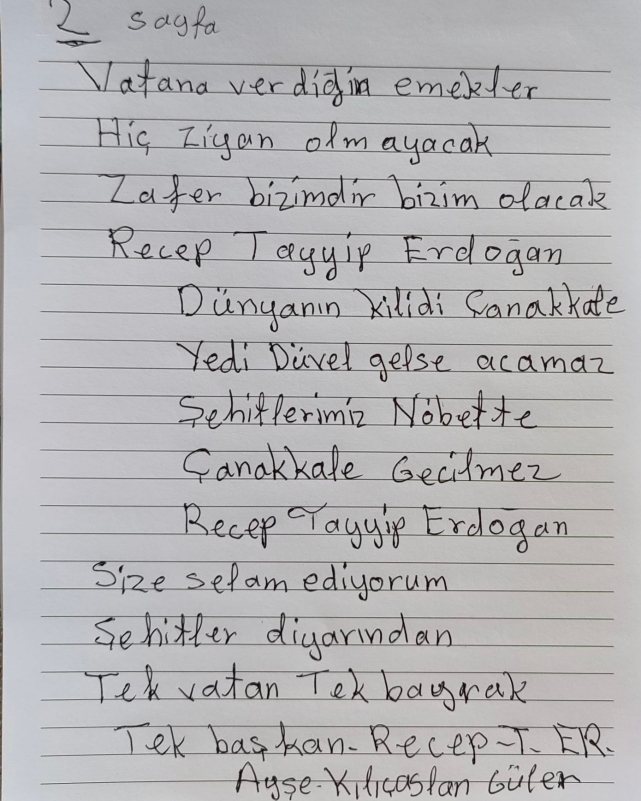 2 sayfa
Vatana verdiğin emekler
Hiç Ziyan olmayacak
Zafer bizimdir bizim olacak
Recep Tayyip Erdoğan
Dünyanın kilidi Çanakkale
Yedi Düvel gelse acamaz
Şehitlerimiz Nöbette
Çanakkale Gecilmez
Recep Tayyip Erdoğan
Size selam ediyorum
Şehitler diyarından
Tek vatan Tek bayrak
Tek başkan-Recep-T. ER.
Ayşe-Kılıçaslan Güler